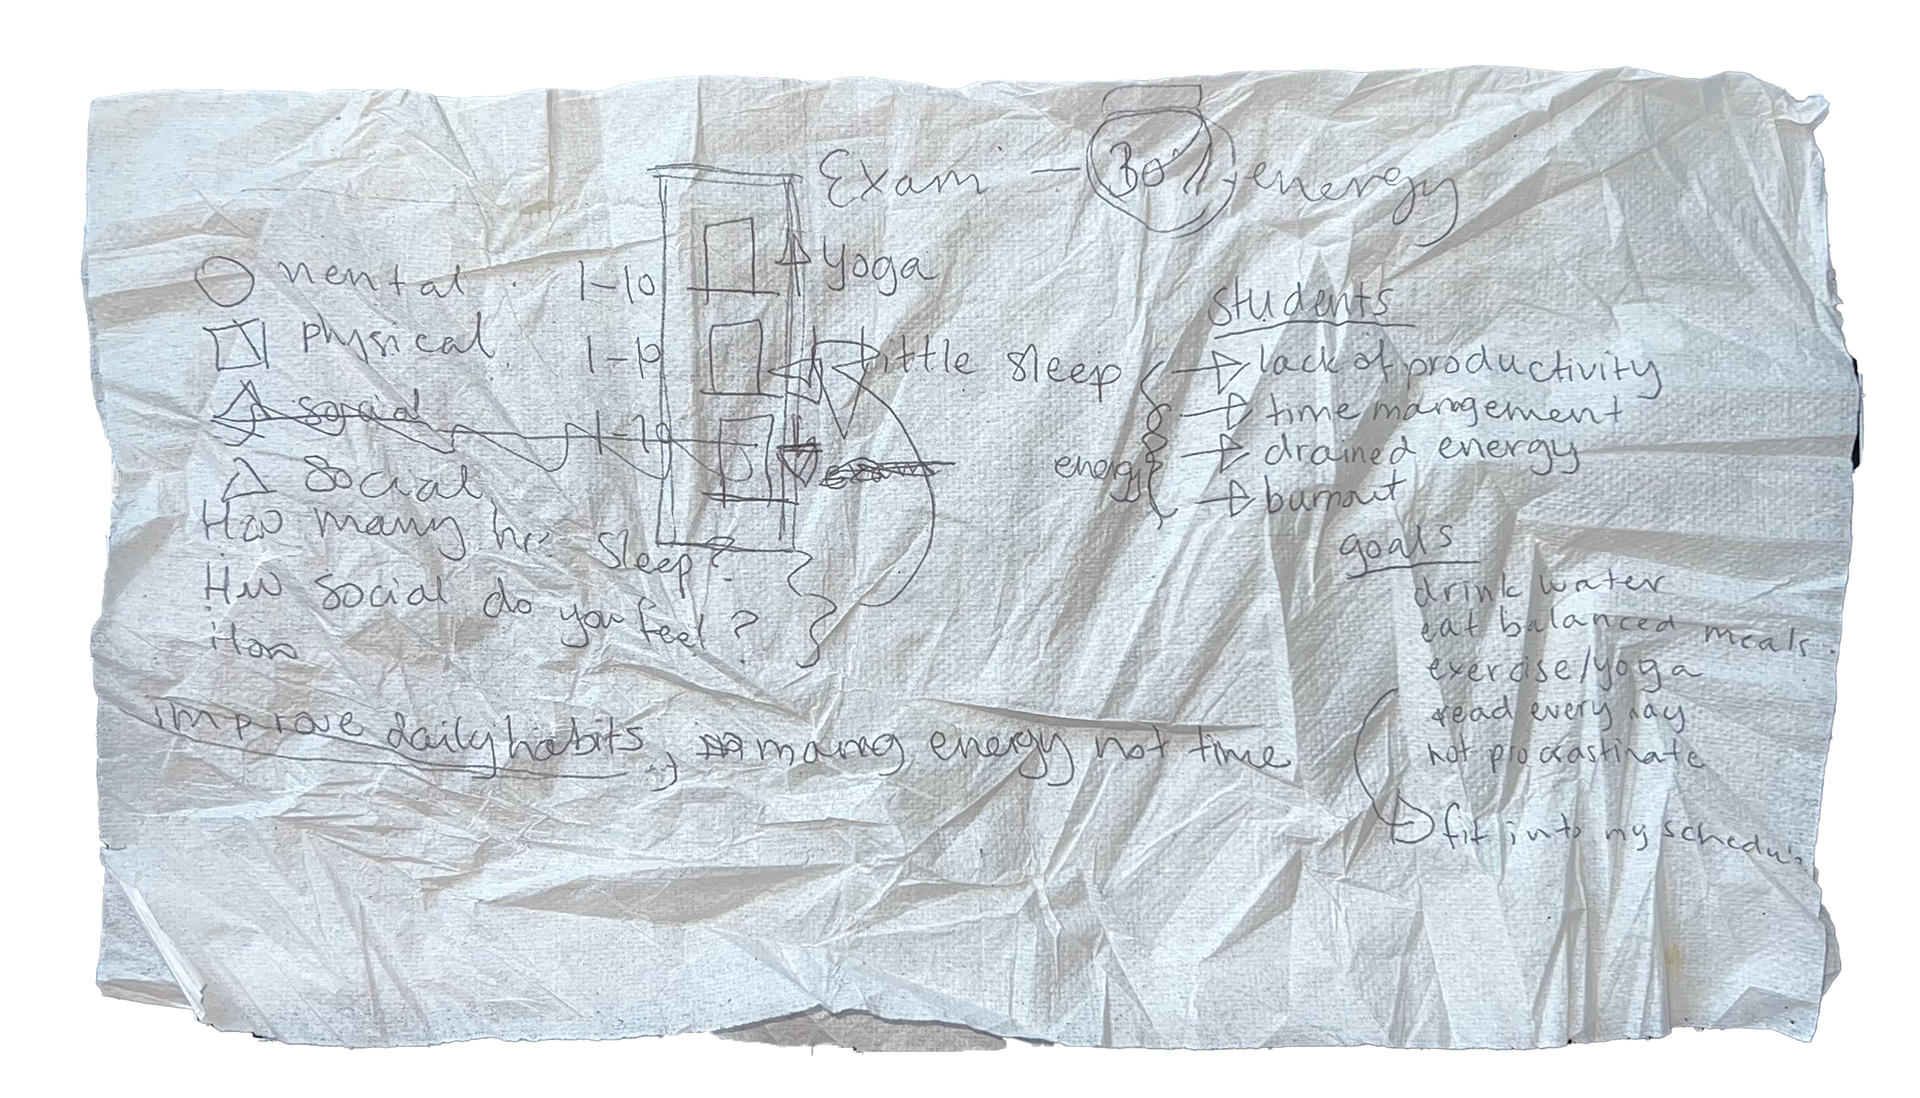 Exam - energy
mental 1-10
yoga
physical 1-10
little sleep
social
social
How many hrs sleep?
How social do you feel?
How
students
lack of productivity
time mangement
drained energy
energy
burnout
goals
drink water
eat balanced meals.
exercise/yoga
read every day
not procrastinate
fit into my schedule
improve daily habits, manag energy not time